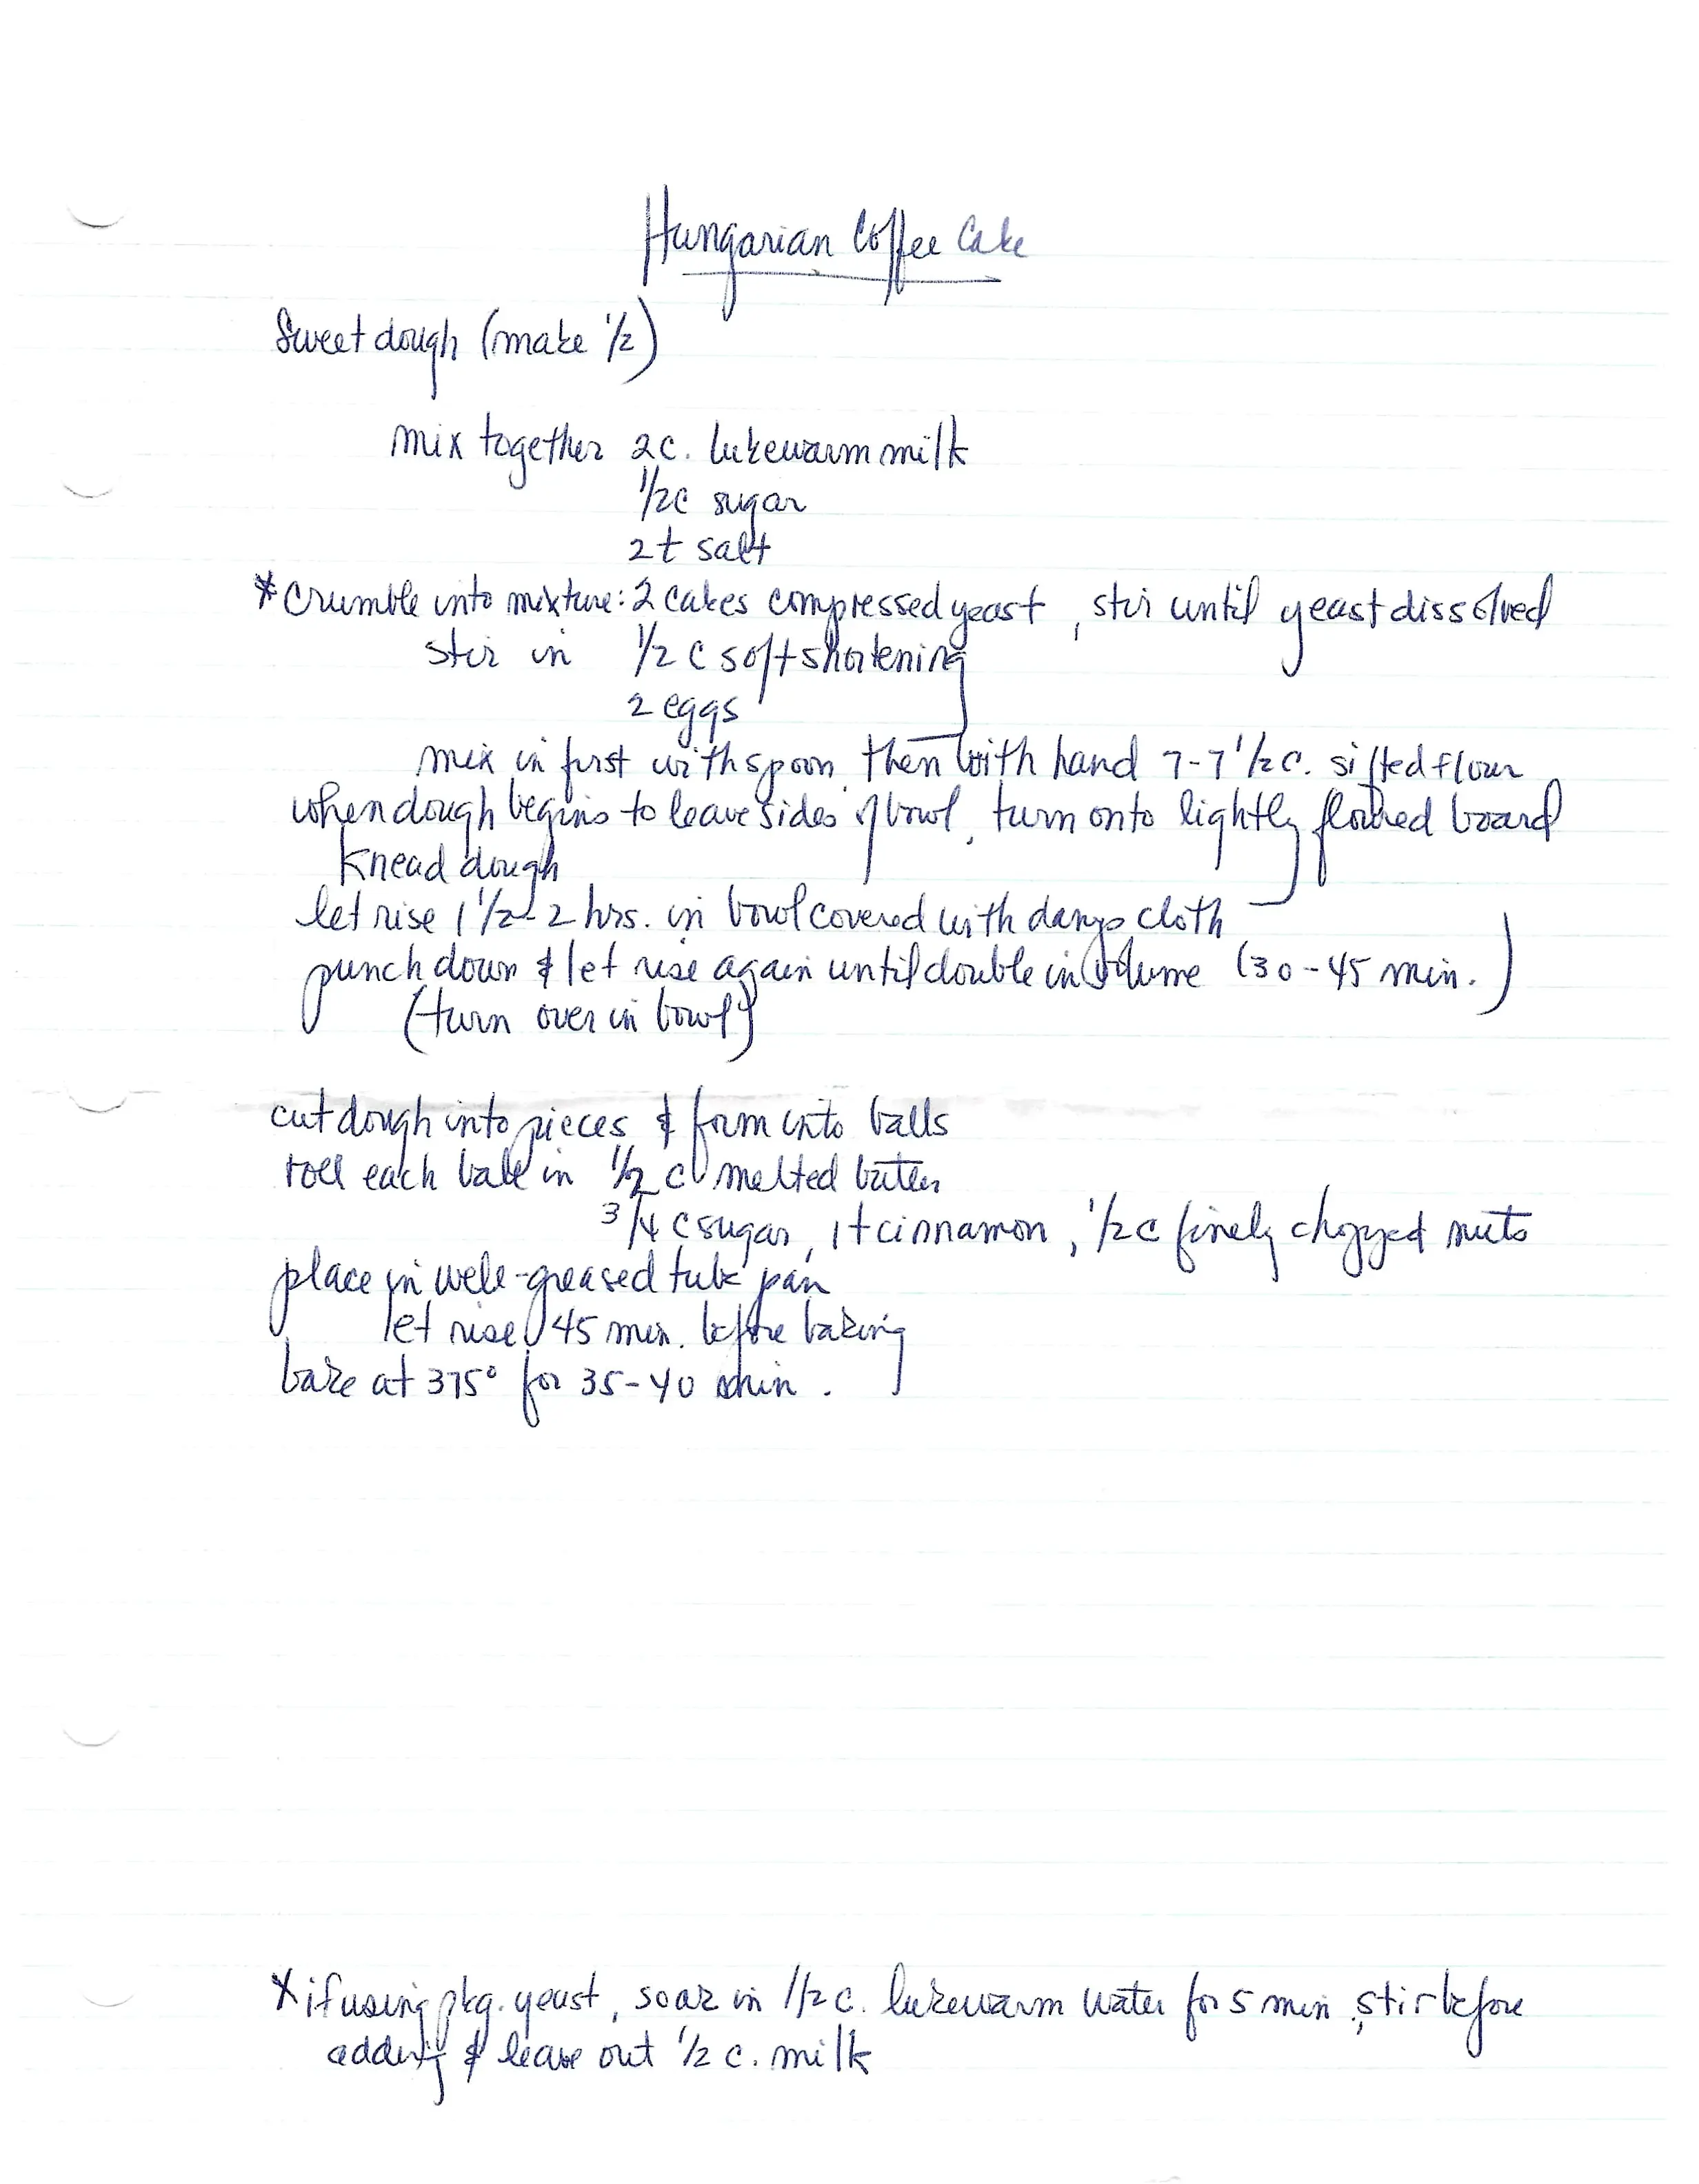 Hungarian Coffee Cake
Sweet dough (make 1/2)
mix together 2c. lukewarm milk
1/2c sugar
2t salt
*crumble into mixture: 2 cakes compressed yeast, stir until yeast dissolved
stir in 1/2 c soft shortening
2 eggs
mix in first with spoon, then with hand 7-7 1/2 c. sifted flour
when dough begins to leave sides of bowl, turn onto lightly floured board
knead dough
let rise 1 1/2-2 hrs. in bowl covered with damp cloth
punch down & let rise again until double in volume (30-45 min.)
(turn over in bowl)
cut dough into pieces & form into balls
roll each ball in 1/2 c melted butter
3/4 c sugar, 1t cinnamon, 1/2c finely chopped nuts
place in well-greased tube pan
let rise 45 min. before baking
bake at 375° for 35-40 min.
*if using pkg. yeast, soak in 1/2 c. lukewarm water for 5 min., stir before
adding & leave out 1/2 c. milk